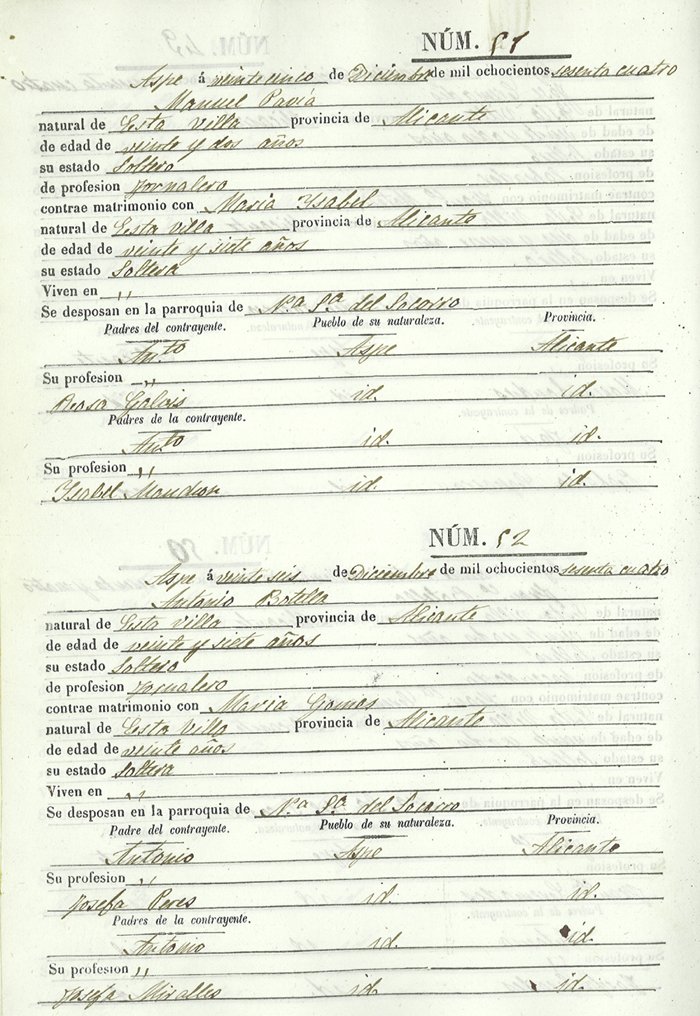 NÚM. 51
Aspe á veinte cinco de Diciembre de mil ochocientos sesenta cuatro
Manuel Pavía
natural de Esta villa provincia de Alicante
de edad de veinte y dos años
su estado Soltero
de profesion Jornalero
contrae matrimonio con Maria Ysabel
natural de Esta villa provincia de Alicante
de edad de veinte y siete años
su estado Soltera
Viven en "
Se desposan en la parroquia de N.ª S.ª del Socorro
Padres del contrayente. Pueblo de su naturaleza. Provincia.
Ant.to Aspe Alicante
Su profesion "
Rosa id. id.
Padres de la contrayente.
Ant.to id. id.
Su profesion "
Ysabel id. id.
NÚM. 52
Aspe á veinte seis de Diciembre de mil ochocientos sesenta cuatro
Antonio Botella
natural de Esta villa provincia de Alicante
de edad de veinte y siete años
su estado Soltero
de profesion Jornalero
contrae matrimonio con Maria Gomes
natural de Esta Villa provincia de Alicante
de edad de veinte años
su estado Soltera
Viven en "
Se desposan en la parroquia de N.ª S.ª del Socorro
Padre del contrayente. Pueblo de su naturaleza. Provincia.
Antonio Aspe Alicante
Su profesion "
Josefa Peres id. id.
Padres de la contrayente.
Antonio id. id.
Su profesion "
Josefa Miralles id. id.